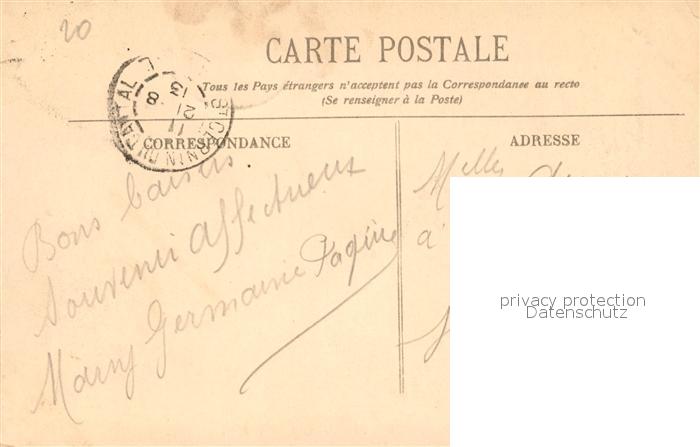 20
CARTE POSTALE
Tous les Pays étrangers n'acceptent pas la Correspondance au recto
(Se renseigner à la Poste)
ST CERNIN DU CANTAL
21 - 8
13
CORRESPONDANCE
ADRESSE
Bons baisers
Souvenir affectueux
Marny Germaine
Melles
à
privacy protection
Datenschutz